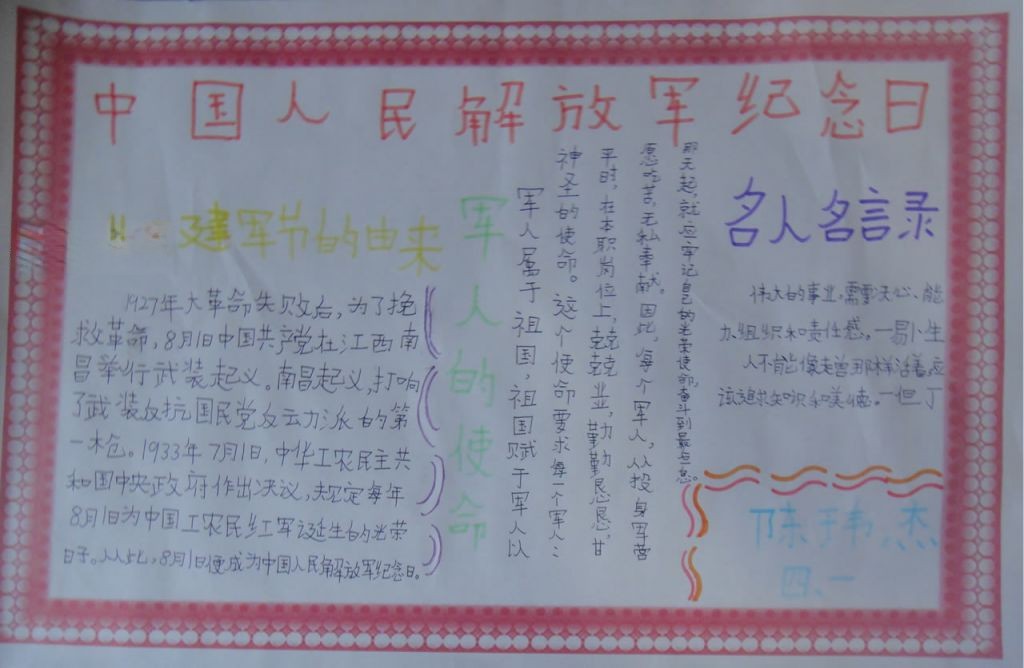 中国人民解放军纪念日
八一建军节的由来
1927年大革命失败后，为了挽
救革命，8月1日中国共产党在江西南
昌举行武装起义。南昌起义，打响
了武装反抗国民党反动派的第
一木仓。1933年7月1日，中华工农民主共
和国中央政府作出决议，规定每年
8月1日为中国工农民红军诞生的光荣
日子。从此，8月1日便成为中国人民解放军纪念日。
军人的使命
军人属于祖国，祖国赋于军人以
神圣的使命。这个使命要求每一个军人：
平时，在本职岗位上，兢兢业业，勤勤恳恳，甘
愿吃苦，无私奉献。因此，每个军人，从投身军营
那天起，就应牢记自己的光荣使命，奋斗到最后一息。
名人名言录
伟大的事业，需要决心、能
力、组织和责任感。—易卜生
人不能像走兽那样活着，应
该追求知识和美德。—但丁
陈玮杰
四、一